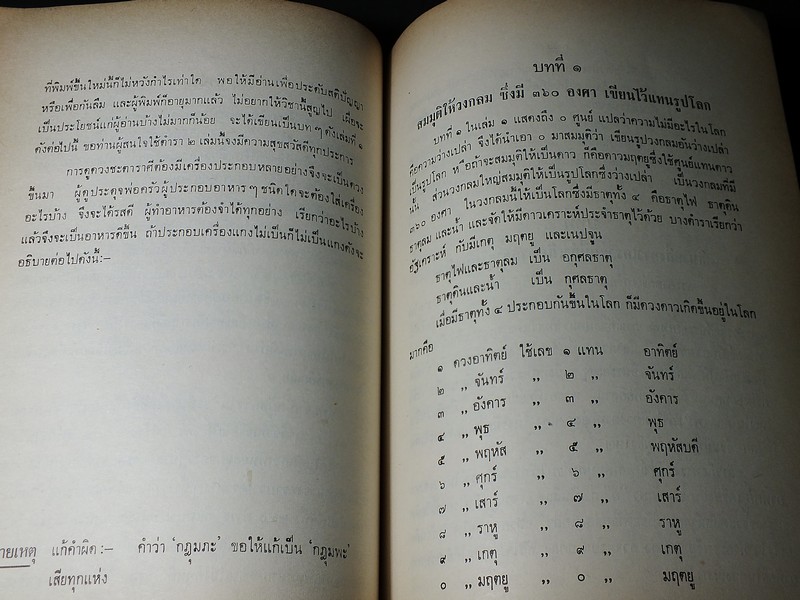 ที่พิมพ์ขึ้นใหม่นี้ก็ไม่หวังกำไรเท่าใด พอให้มีอ่านเพื่อประดับสติปัญญา
หรือเพื่อกันลืม และผู้พิมพ์ก็อายุมากแล้ว ไม่อยากให้วิชานี้สูญไป เผื่อจะ
เป็นประโยชน์แก่ผู้อ่านบ้างไม่มากก็น้อย จะได้เขียนเป็นบท ๆ ดังเล่มที่ ๑
ดังต่อไปนี้ ขอท่านผู้สนใจใช้ตำรา ๒ เล่มนี้จงมีความสุขสวัสดีทุกประการ
การดูดวงชะตาราศีต้องมีเครื่องประกอบหลายอย่างจึงจะเป็นดวง
ขึ้นมา ผู้ดูประดุจพ่อครัวผู้ประกอบอาหาร ๆ ชนิดใดจะต้องใส่เครื่อง
อะไรบ้าง จึงจะได้รสดี ผู้ทำอาหารต้องจำได้ทุกอย่าง เรียกว่าอะไรบ้าง
แล้วจึงจะเป็นอาหารดีขึ้น ถ้าประกอบเครื่องแกงไม่เป็นก็ไม่เป็นแกงดังจะ
อธิบายต่อไปดังนี้:–
ายเหตุ แก้คำผิด:– คำว่า ‘กฎุมภะ’ ขอให้แก้เป็น ‘กฎุมพะ’
เสียทุกแห่ง
บทที่ ๑
สมมุติให้วงกลม ซึ่งมี ๓๖๐ องศา เขียนไว้แทนรูปโลก
บทที่ ๑ ในเล่ม ๑ แสดงถึง ๐ ศูนย์ แปลว่าความไม่มีอะไรในโลก
คือความว่างเปล่า จึงได้นำเอา ๐ มาสมมุติว่า เขียนรูปวงกลมอันว่างเปล่า
เป็นรูปโลก หรือถ้าจะสมมุติให้เป็นดาว ก็คือดาวมฤตยูซึ่งใช้ศูนย์แทนดาว
นี้ ส่วนวงกลมใหญ่สมมุติให้เป็นรูปโลกซึ่งว่างเปล่า เป็นวงกลมที่มี
๓๖๐ องศา ในวงกลมนี้ให้เป็นโลกซึ่งมีธาตุทั้ง ๔ คือธาตุไฟ ธาตุดิน
ธาตุลม และน้ำ และจัดให้มีดาวเคราะห์ประจำธาตุไว้ด้วย บางตำราเรียกว่า
อัฐเคราะห์ กับมีเกตุ มฤตยู และเนปจูน
ธาตุไฟและธาตุลม เป็น อกุศลธาตุ
ธาตุดินและน้ำ เป็น กุศลธาตุ
เมื่อมีธาตุทั้ง ๔ ประกอบกันขึ้นในโลก ก็มีดวงดาวเกิดขึ้นอยู่ในโลก
มากคือ
๑ ดวงอาทิตย์ ใช้เลข ๑ แทน อาทิตย์
๒ ,, จันทร์ ,, ๒ ,, จันทร์
๓ ,, อังคาร ,, ๓ ,, อังคาร
๔ ,, พุธ ,, ๔ ,, พุธ
๕ ,, พฤหัส ,, ๕ ,, พฤหัสบดี
๖ ,, ศุกร์ ,, ๖ ,, ศุกร์
๗ ,, เสาร์ ,, ๗ ,, เสาร์
๘ ,, ราหู ,, ๘ ,, ราหู
๙ ,, เกตุ ,, ๙ ,, เกตุ
๐ ,, มฤตยู ,, ๐ ,, มฤตยู